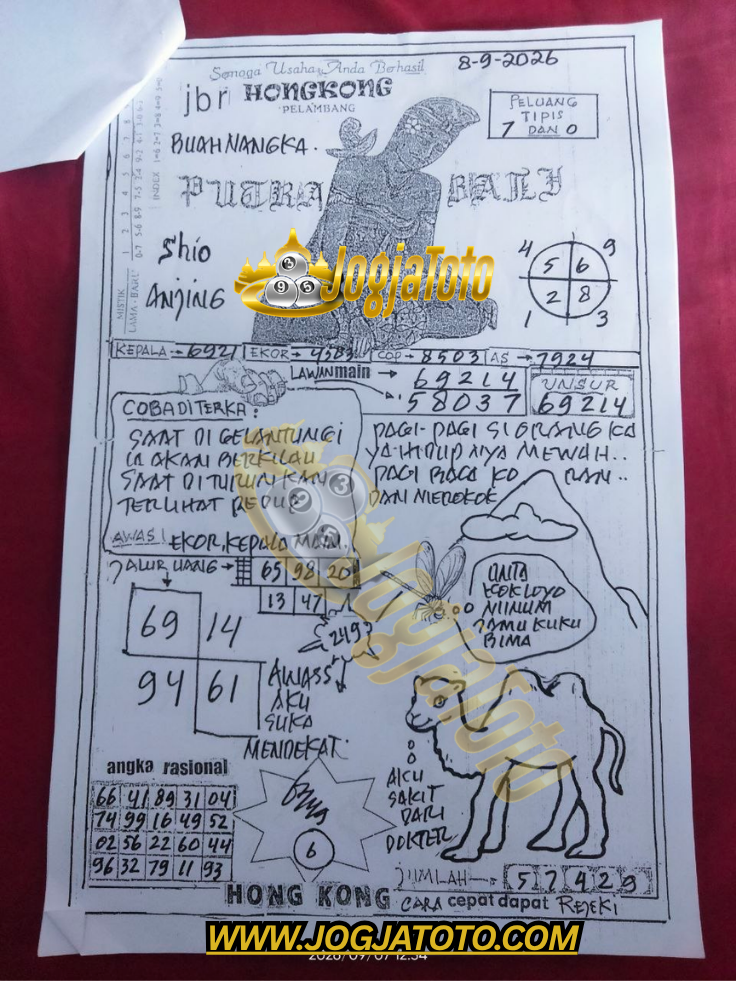 Semoga Usaha Anda Berhasil
8-9-2026
jbr HONGKONG
PELAMBANG
PELUANG
TIPIS
7 DAN 0
BUAH NANGKA.
PUTRA BALI
Shio
ANJING
JogjaToto
4 9
5 6
2 8
1 3
MISTIK
LAMA - BARU
INDEX
KEPALA → 6921 EKOR → 4583 COP → 8503 AS → 7924
LAWAN main → 69214
58037
UNSUR
69214
COBA DI TERKA:
SAAT DI GELANTUNGI
IA AKAN BERKILAU
SAAT DI TURUNKAN
TERLIHAT REDUP
AWAS! EKOR, KEPALA MAIN.
PAGI-PAGI SI ORANG KA
YA-HIDUP NYA MEWAH..
PAGI BACA KO RAN..
DAN MEROKOK
ALUR UANG → 65 98 20
13 47
249?
69 14
94 61
AWASS
AKU
SUKA
MENDEKAT.
UNTA
KOK LOYO
MINUM
JAMU KUKU
BIMA
JogjaToto
angka rasional
66 41 89 31 04
74 99 16 49 52
02 56 22 60 44
96 32 79 11 93
6
AKU
SAKIT
DARI
DOKTER
JUMLAH → 5 7 4 2 9
HONG KONG CARA cepat dapat REJEKI
WWW.JOGJATOTO.COM
2026/09/07 12:34